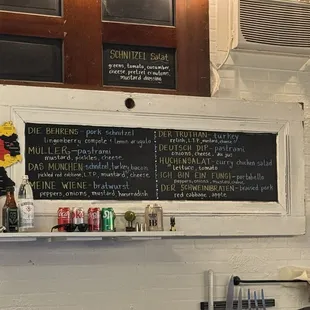 SCHNITZEL Salat
greens, tomato, cucumber,
cheese, pretzel croutons,
mustard dressing
DIE BEHRENS - pork schnitzel
lingenberry compote + lemon
MULLER - pastrami
mustard, pickles, cheese
DAS MUNCHEN - schnitzel, turkey, bacon
pickled red onion, L.T.P. cheese
MEINE WIENE - bratwurst
peppers, onions, mustard,
DER TRUTHAN - turkey
relish, L.T.P. mustard, cheese
DEUTSCH DIP - pastrami
onions, cheese, au jus
HUCHENSALAT - curry chicken salad
lettuce + tomato
ICH BIN EIN FUNGI - portabello
DER SCHWEINBRATEN - braised pork
red cabbage, apple